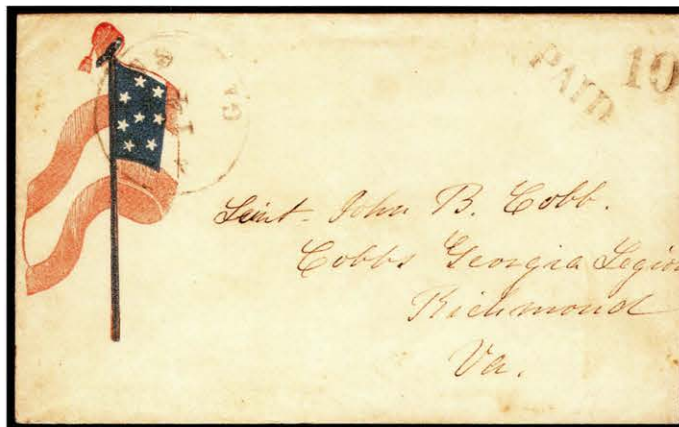 PAID 10
Lieut. John B. Cobb.
Cobbs Georgia Legion
Richmond
Va.